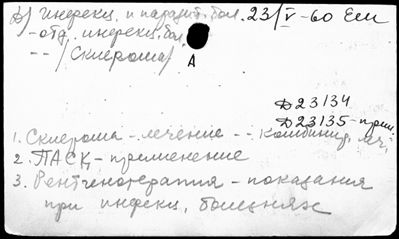 б) инфекц. и паразит. бол. 23/V-60 Еш
- отд. инфекц. бол.
-- /Склерома/
А
Д23134
Д23135-прим.
1. Склерома - лечение -- комбинир. леч.
2. ПАСК - применение
3. Рентгенотерапия - показания
при инфекц. болезнях